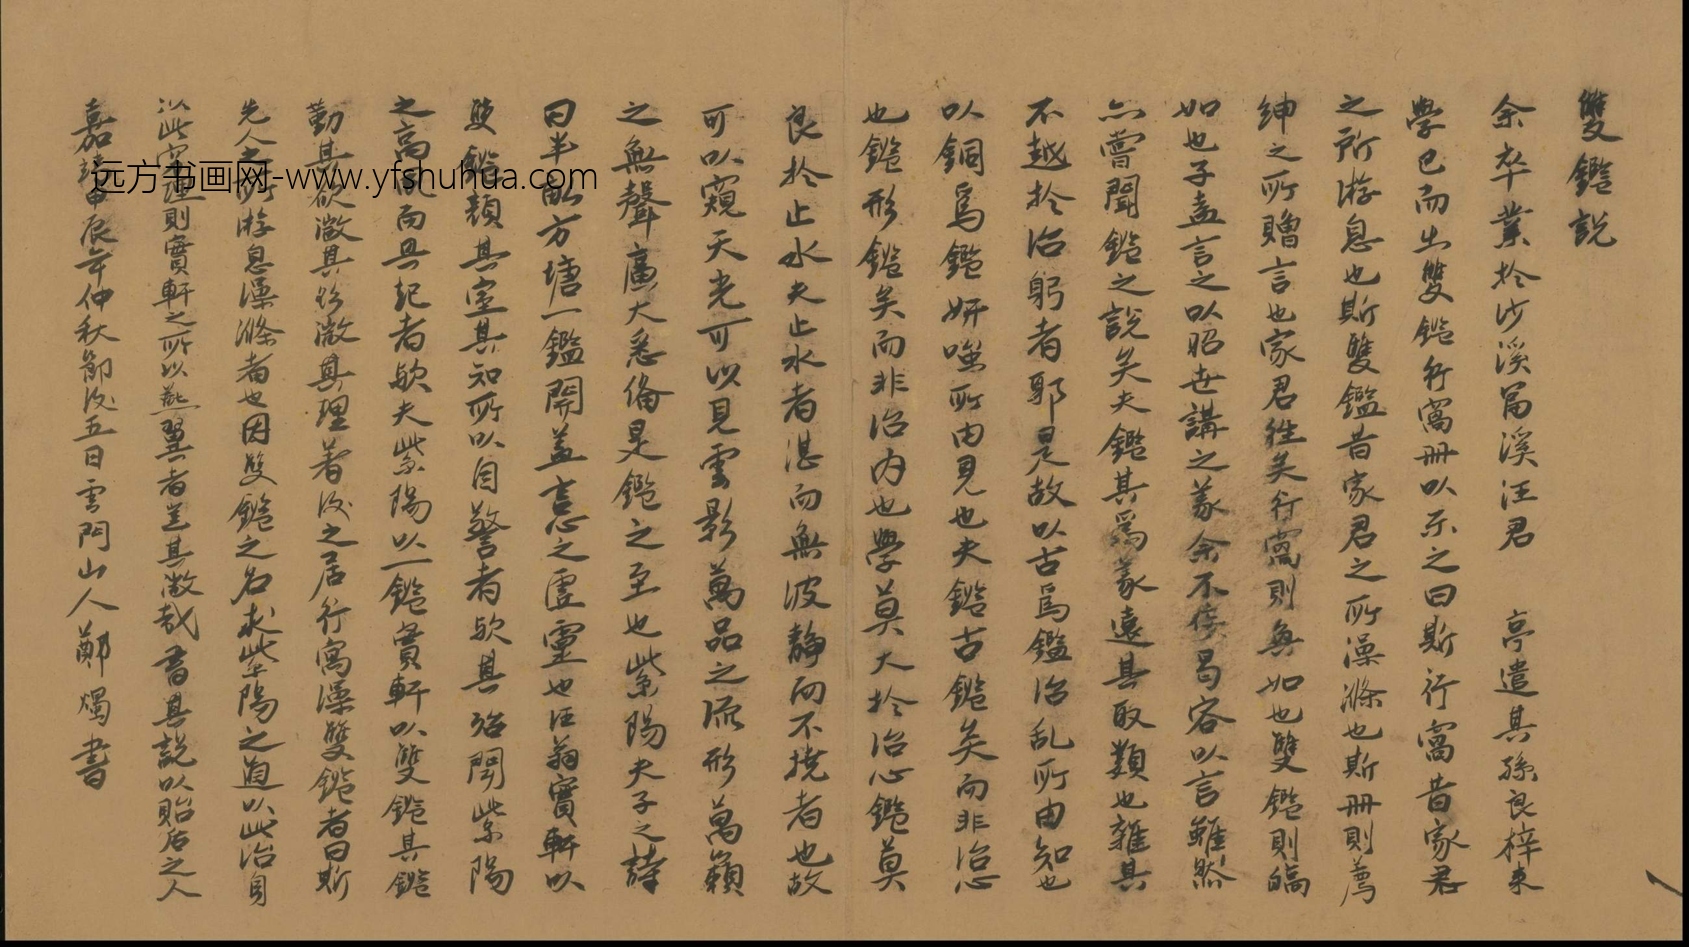 雙鑑說
余卒業於沙溪富溪汪君 亭遣其孫良梓來
學已而出雙鑑行窩冊以示之曰斯行窩昔家君
之所游息也斯雙鑑昔家君之所澡滌也斯冊則薦
紳之所贈言也家君往矣行窩則無如也雙鑑則
如也子盍言之以昭世講之義余不佞曷容以言雖然
亦嘗聞鑑之說矣夫鑑其爲義遠其取類也雜其
不越於治躬者耶是故以古爲鑑治乱所由知也
以銅爲鑑妍媸所由見也夫鑑古鑑矣而非治心
也鑑形鑑矣而非治內也學莫大於治心鑑莫
良於止水夫止水者湛而無波靜而不撓者也故
可以窺天光可以見雲影萬品之流形萬籟
之無聲廣大悉俻是鑑之至也紫陽夫子之詩
曰半畝方塘一鑑開盖言心之虛靈也汪翁實軒以
雙鑑顏其室其知所以自警者歟其殆聞紫陽
之高風而興起者歟夫紫陽以一鑑實軒以雙鑑其鑑
勤其欲澂其形澂其理著後之居行窩澡雙鑑者曰斯
先人之所游息澡滌者也因雙鑑之名求紫陽之道以此治身
以此 則實軒之所以燕翼者豈其微哉書其說以貽后之人
嘉靖甲辰年仲秋節後五日雲門山人鄭燭書
远方书画网-www.yfshuhua.com